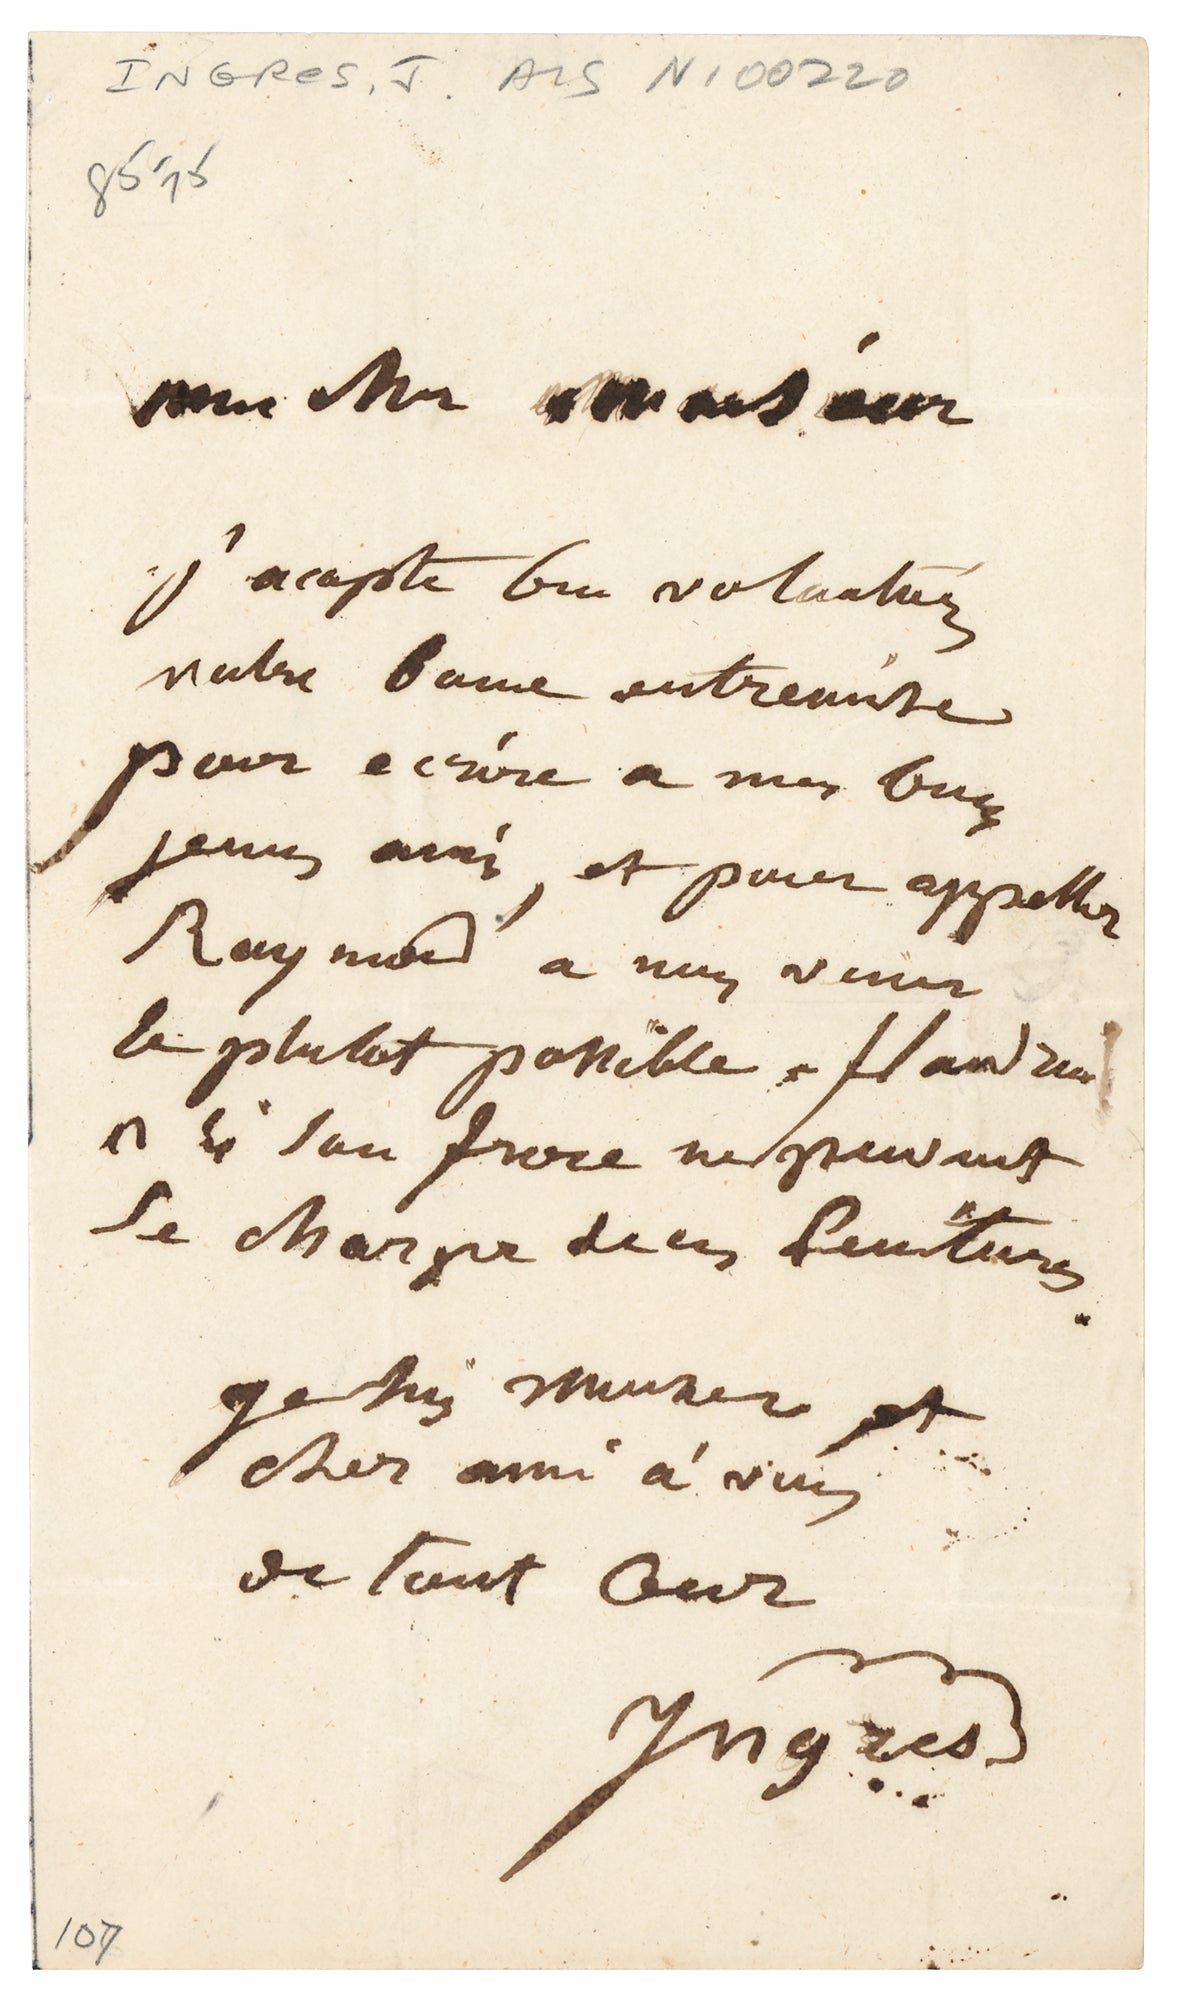 INGRES, J. ALS N100220
8575
mon cher monsieur
j'acapte bien volontiés
notre bonne entremise
pour ecrire a mes bons
jeunes amis, et pour appeller
Raymond a nous venir
le plutot possible. flandrin
n si son frere ne peuvent
se charger de ces Peintures.
je suis monsieur et
cher ami á vous
de tout Cœur
Yngres
107